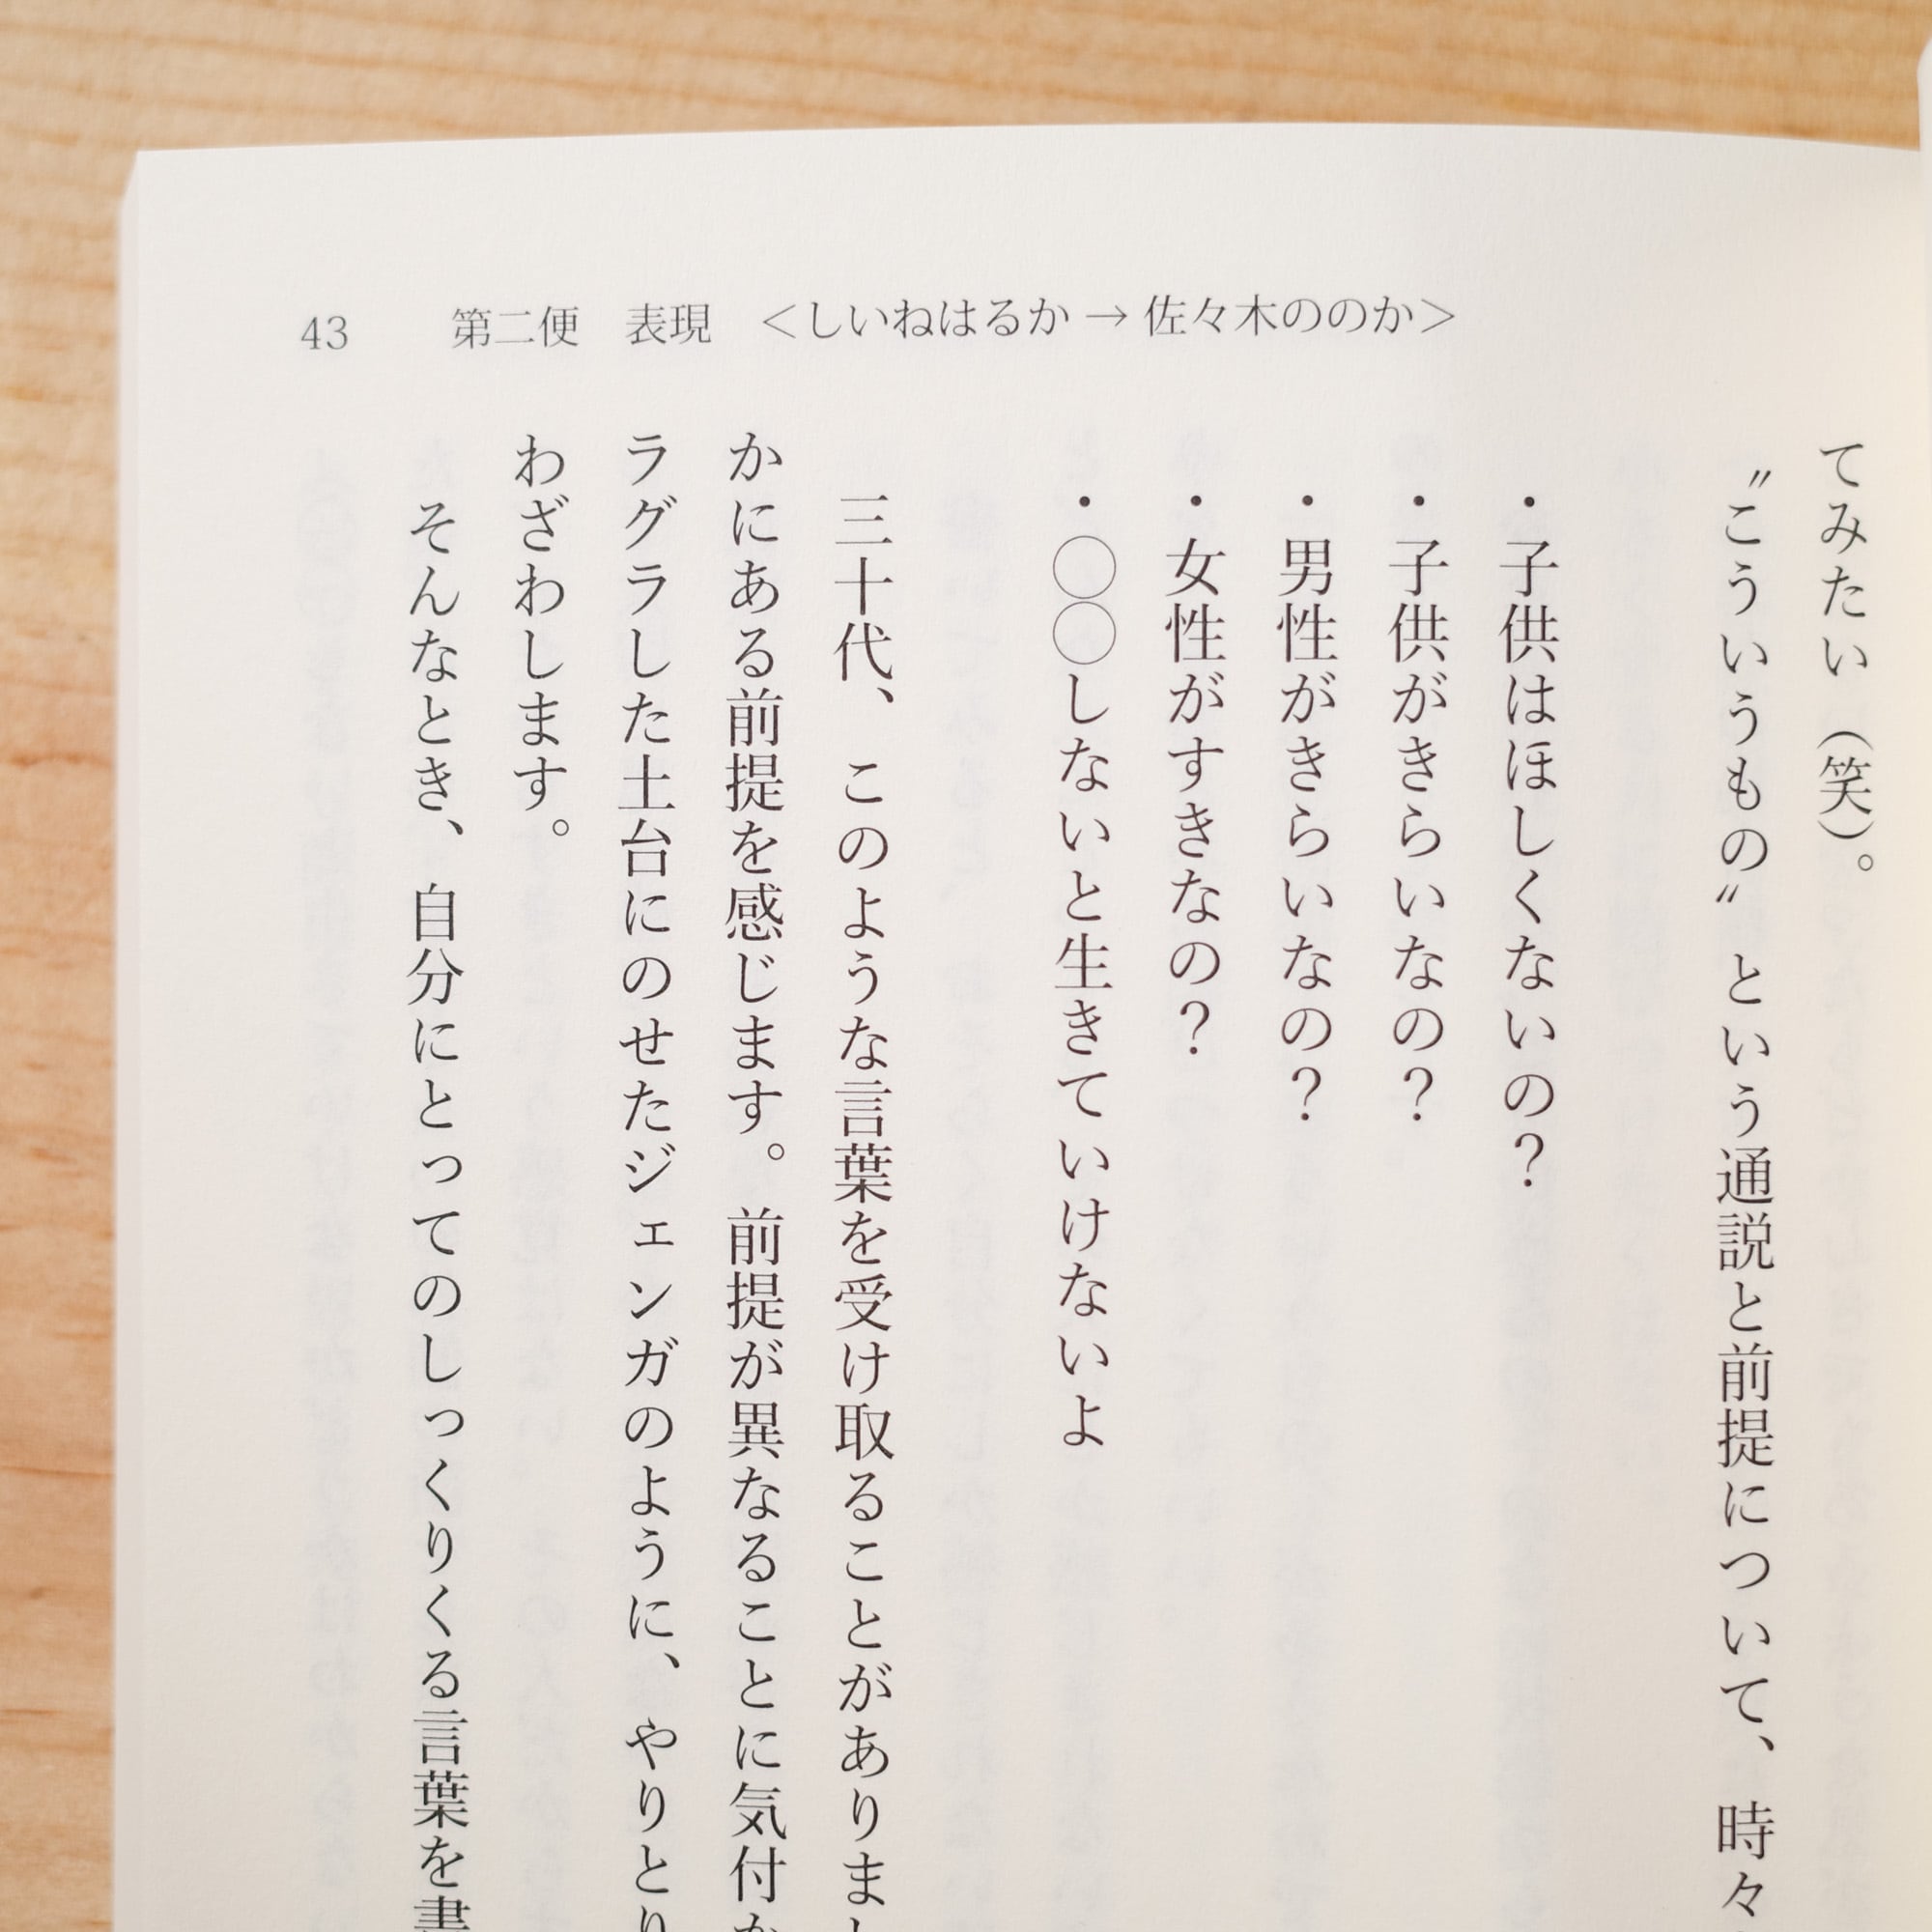 43　第二便　表現　＜しいねはるか → 佐々木ののか＞
てみたい（笑）。
〝こういうもの〟という通説と前提について、時々
・子供はほしくないの？
・子供がきらいなの？
・男性がきらいなの？
・女性がすきなの？
・◯◯しないと生きていけないよ
三十代、このような言葉を受け取ることがありまし
かにある前提を感じます。前提が異なることに気付か
ラグラした土台にのせたジェンガのように、やりとり
わざわします。
そんなとき、自分にとってのしっくりくる言葉を書